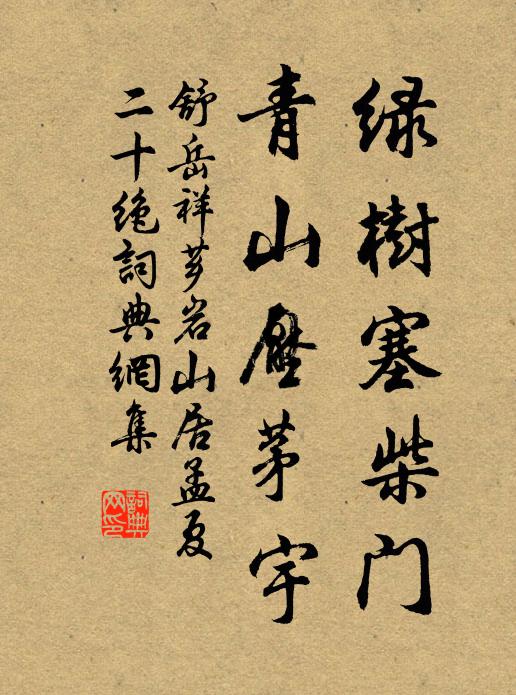 绿樹塞柴門
青山壓茅宇
舒岳祥芗岩山居孟夏
二十絶詞典網集
詞典網印